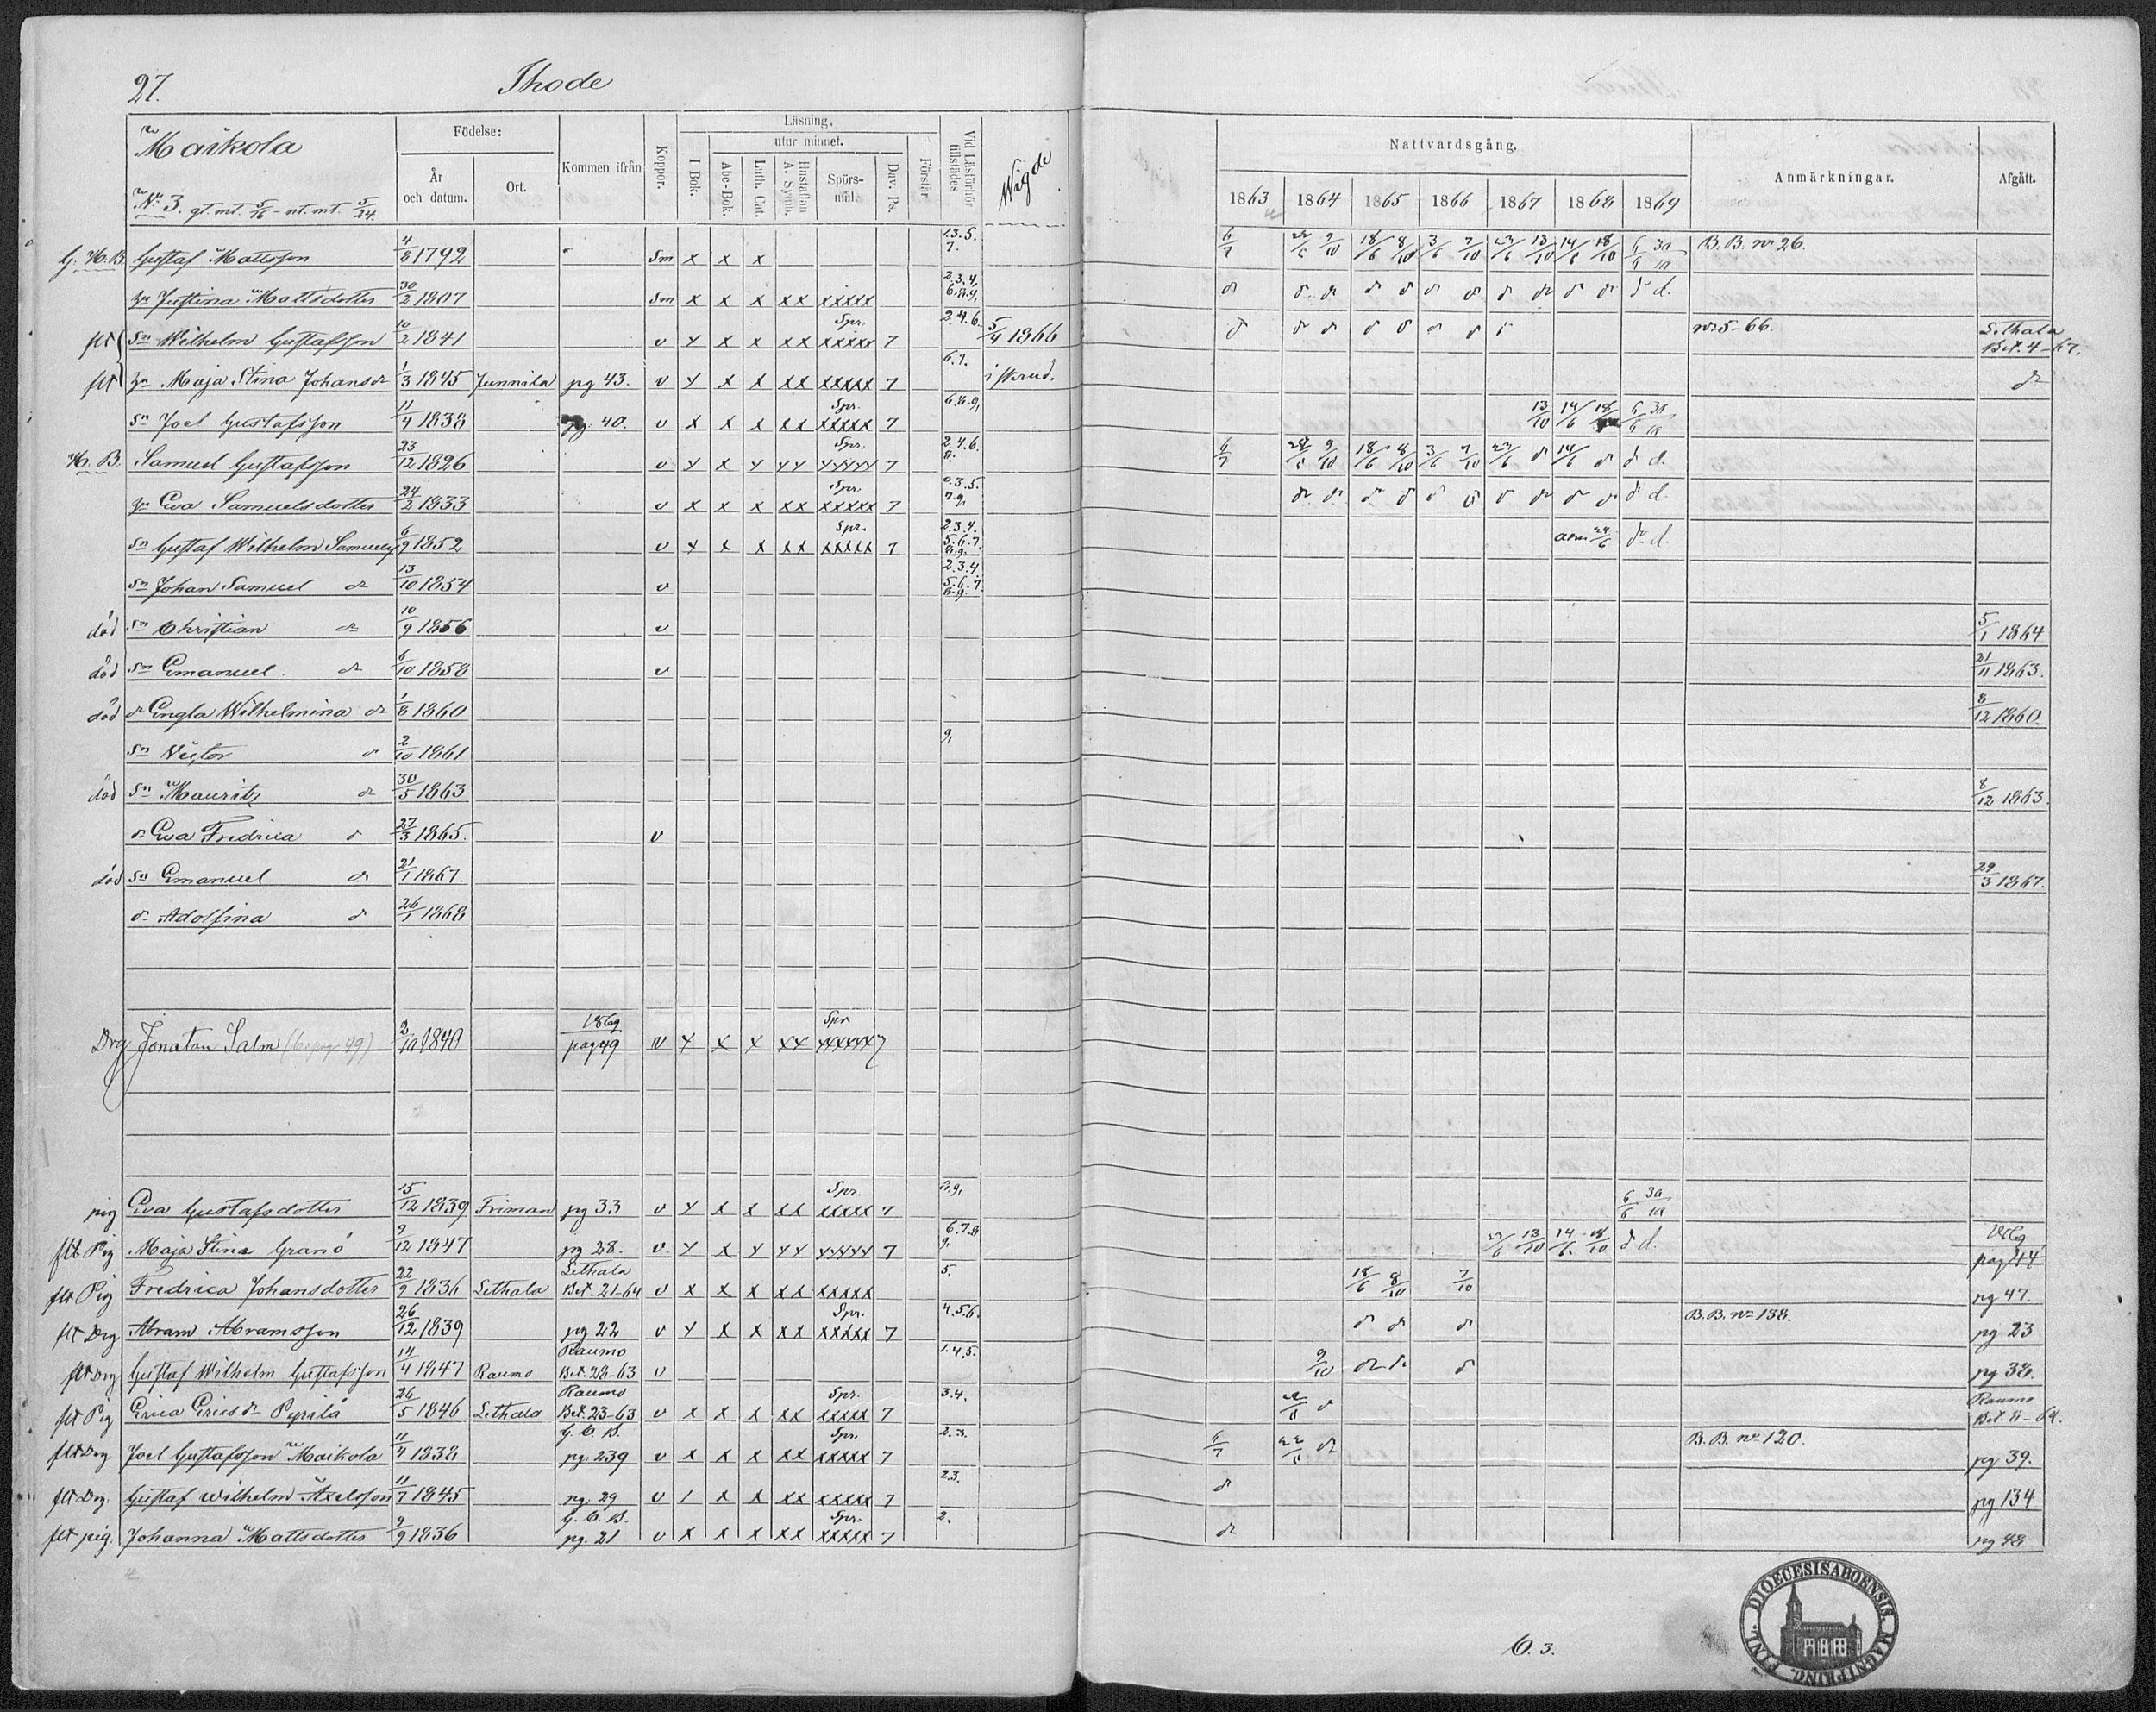 27. Ihode
Maikola
No 3. gt. mt. 5/16 - nt. mt. 5/24.
Födelse:
År och datum.
Ort.
Kommen ifrån
Koppor.
Läsning.
utur minnet.
I Bok.
Abc-Bok.
Luth. Cat.
Hustaflan A. Symb.
Spörsmål.
Dav. Ps.
Förstår.
Vid Läsförhör tillstädes
Wigde
Nattvardsgång.
1863 1864 1865 1866 1867 1868 1869
Anmärkningar.
Afgått.
G. H. B. Gustaf Mattsson 4/8 1792 Sm x x x 1.3.5. 7. 6/7 9/10 18/6 8/10 3/6 7/10 23/6 13/10 14/6 18/10 B. B. no 26.
hu Justina Mattsdotter 30/2 1807 Sm x x x xx xxxxx 2.3.4. 6.8.9.
flt sn Wilhelm Gustafsson 10/2 1841 v x x x xx Spr. xxxxx 7 2.4.6. 5/4 1866 no 5-66. Lethala Bet. 4-67.
flt hu Maja Stina Johansdr 1/3 1845 Junnila pg 43. v x x x xx xxxxx 7 6.7. dr
sn Joel Gustafsson 11/4 1838 pg. 40. v x x x xx Spr. xxxxx 7 6.8.9. 13/10 14/6 18
H. B. Samuel Gustafsson 23/12 1826 v x x x xx Spr. xxxxx 7 2.4.6. 8. 6/7 9/10 18/6 8/10 3/6 7/10 23/6 14/6
hu Eva Samuelsdotter 24/2 1833 v x x x xx Spr. xxxxx 7
sn Gustaf Wilhelm Samuels 6/9 1852 v x x x xx Spr. xxxxx 7 2.3.4. 5.6.7. 8.9.
sn Johan Samuel dr 13/10 1854 v 2.3.4. 5.6.7. 8.9.
död sn Christian dr 10/9 1856 v 5/1 1864
död sn Emanuel dr 6/10 1858 v 21/11 1863.
död dr Engla Wilhelmina dr 1/8 1860 8/12 1860.
sn Victor dr 2/10 1861 9.
död sn Mauritz dr 30/5 1863 8/12 1863.
dr Eva Fredrica dr 27/3 1865. v
död sn Emanuel dr 21/1 1867. 29/3 1867.
dr Adolfina dr 26/1 1868
Drg Jonatan Salm 2/10 1840 1869 pag 49 v x x x xx Spr xxxxx 7
pig Eva Gustafsdotter 15/12 1839 Friman pg 33 v x x x xx Spr. xxxxx 7 8.9.
flt Pig Maja Stina Granö 9/12 1847 pg 28. v x x x xx xxxxx 7 6.7.8 9. 13/10 14/6 18/10 1869 pag 44
flt Pig Fredrica Johansdotter 22/9 1836 Lethala Lethala Bet. 21-64 v x x x xx xxxxx 5. 18/6 8/10 7/10 pg 47.
flt Drg Abram Abramsson 26/12 1839 pg 22 v x x x xx Spr. xxxxx 7 4.5.6. B. B. no 138. pg 23
flt Drg Gustaf Wilhelm Gustafsson 14/4 1847 Raumo Raumo Bet. 28-63 v 1.4.5. 9/10 pg 38.
flt Pig Erica Ericsdr Pyrilä 26/5 1846 Lethala Raumo Bet. 23-63 v x x x xx Spr. xxxxx 7 3.4. Raumo Bet. 8-64.
flt Drg Joel Gustafsson Maikola 11/4 1838 G. C. B. pg. 239 v x x x xx Spr. xxxxx 7 2.3. 6/7 B. B. no 120. pg 39.
flt Drg. Gustaf Wilhelm Axelsson 11/7 1845 pg. 29 v x x x xx xxxxx 7 2.3. pg 134
flt pig. Johanna Mattsdotter 9/9 1836 G. C. B. pg. 21 v x x x xx Spr. xxxxx 7 2. pg 48
6. 3.
DIOECESIS ABOENSIS. MAGNI PRINC. FINL.